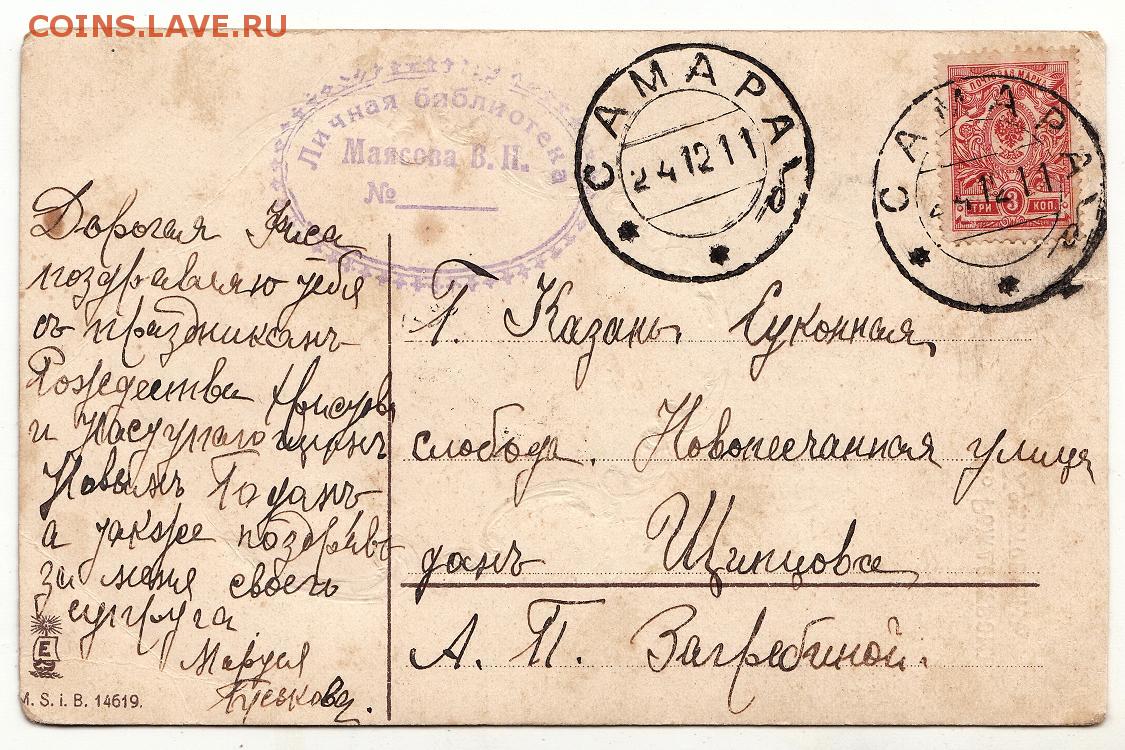 COINS.LAVE.RU
Личная библиотека
Маясова В. Н.
№
САМАРА
24 12 11
САМАРА
24 12 11
ПОЧТОВАЯ МАРКА
ТРИ 3 КОП.
Дорогая
поздравляю тебя
съ праздникамъ
Рождества Христова
и Наступающимъ
Новымъ Годамъ
а также поздравь
за меня своего
супруга.
Маруся
Г. Казань. Суконная
слобода. Новопесчанная улица
домъ Щинцова
А. П. Загребиной.
E
M. S. i. B. 14619.